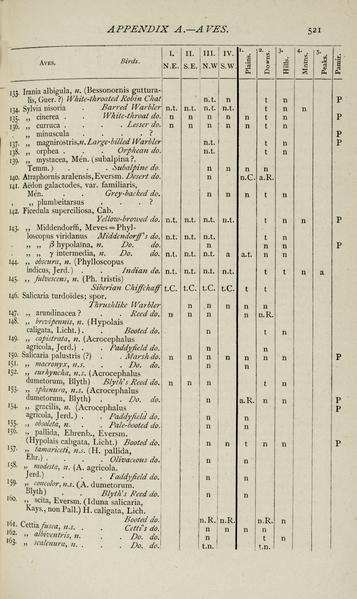 APPENDIX A.—AVES. 521
I. II. III. IV. 1. 2. 3. 4. 5.
AVES. Birds. N.E. S.E. N.W. S.W. Plains. Downs. Hills. Mntns. Peaks. Pamir.
133. Irania albigula, n. (Bessonornis guttura-
lis, Guer. ?) White-throated Robin Chat n.t. n t n P
134. Sylvia nisoria . Barred Warbler n.t. n.t. n.t. n.t. t n n
135. „ cinerea . White-throat do. n n n n n t n P
136. „ curruca . . Lesser do. n n n n n t n P
„ minuscula . . . . ? P
137. „ magnirostris, n. Large-billed Warbler n.t. t n P
138. „ orphea . . Orphean do. n.t. t n
139. „ mystacea, Mén. (subalpina ?,
Temm.) . . Subalpine do. n n n n
140. Atraphornis aralensis, Eversm. Desert do. n n.C. a.R.
141. Aëdon galactodes, var. familiaris,
Mén. . . Grey-backed do. n n n t n
„ plumbeitarsus . . . ?
142. Ficedula superciliosa, Cab.
Yellow-browed do. n.t. n.t. n.t. n.t. t n n P
143. „ Middendorffi, Meves = Phyl-
loscopus viridanus Middendorff's do. n.t. n.t. n.t. t n
„ „ β hypolaina, n. Do. do. n n n P
„ „ γ intermedia, n. Do. do. n.t. n.t. n.t. a a.t. n n
144. „ obscura, n. (Phylloscopus
indicus, Jerd.) . . Indian do. n.t. n.t. n.t. n.t. t t n a
145. „ fulvescens, n. (Ph. tristis)
Siberian Chiffchaff t.C. t.C. t.C. t.C. t t
146. Salicaria turdoides; spor.
Thrushlike Warbler n n n n n
147. „ arundinacea ? . Reed do. n n n n n.R.
148. „ brevipennis, n. (Hypolais
caligata, Licht.) . . Booted do. n t n
149. „ capistrata, n. (Acrocephalus
agricola, Jerd.) . Paddyfield do. n n
150. Salicaria palustris (?) . Marsh do. n n n n n n n P
151. „ macronyx, n.s. . Do. do. n n
152. „ eurhyncha, n.s. (Acrocephalus
dumetorum, Blyth) Blyth's Reed do. n n n t n
153. „ sphenura, n.s. (Acrocephalus
dumetorum, Blyth) . Do. do. n a.R. n n P
154. „ gracilis, n. (Acrocephalus P
agricola, Jerd.) . Paddyfield do. n n
155. „ obsoleta, n. . Pale-booted do. n n
156. „ pallida, Ehrenb., Eversm.
(Hypolais caligata, Licht.) Booted do. n n t n n P
157. „ tamariceti, n.s. (H. pallida,
Ehr.) . . . Olivaceous do. n n
158. „ modesta, n. (A. agricola.
Jerd.) . . . Paddyfield do. n n
159. „ concolor, n.s. (A. dumetorum.
Blyth) . . Blyth's Reed do. n n
160. „ scita, Eversm. (Iduna salicaria,
Kays., non Pall.) H. caligata, Lich.
Booted do. n.R. n.R. n.R. n
161. Cettia fusca, n.s. . . Cetti's do. n n n n
162. „ albiventris, n. . Do. do. n t n
163. „ scalenura, n. . Do. do. t.n. t.n.